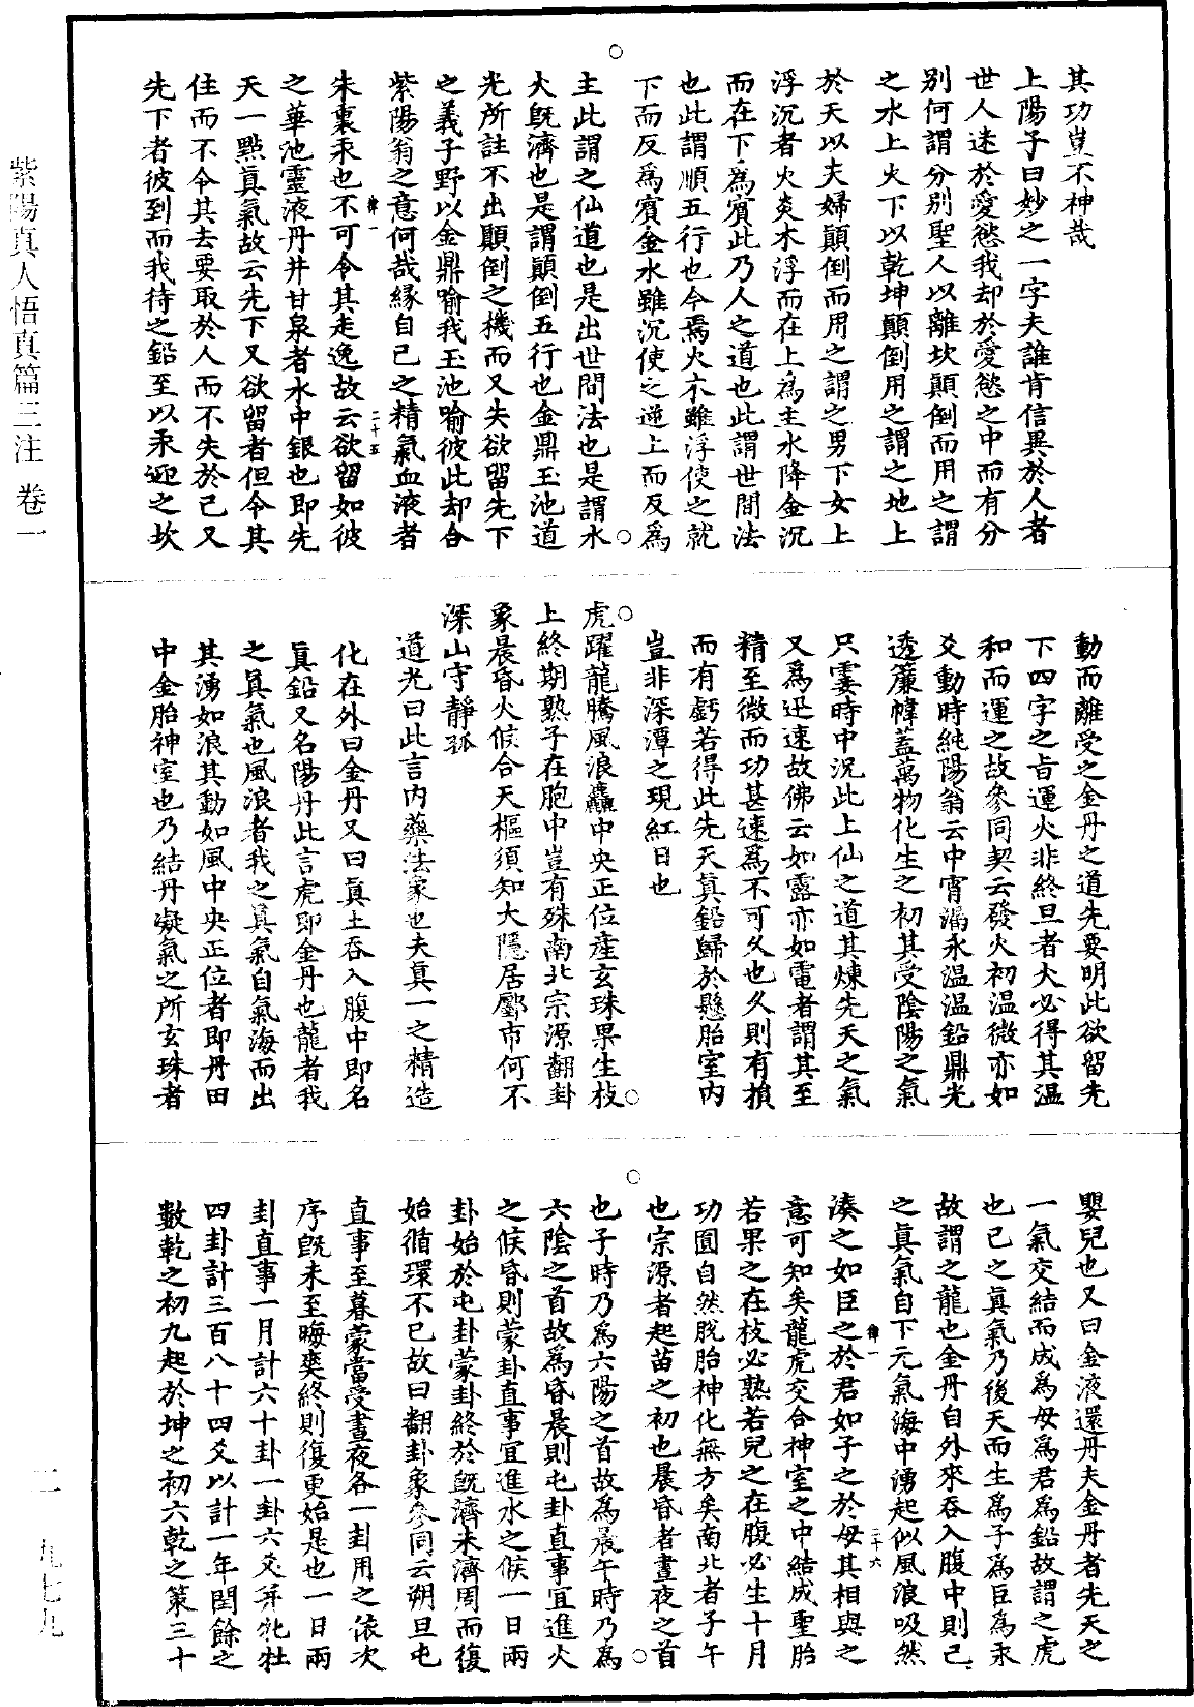 其功豈不神哉
上陽子曰妙之一字夫誰肯信異於人者
世人迷於愛慾我却於愛慾之中而有分
別何謂分別聖人以離坎顛倒而用之謂
之水上火下以乾坤顛倒用之謂之地上
於天以夫婦顛倒而用之謂之男下女上
浮沉者火炎木浮而在上爲主水降金沉
而在下爲賓此乃人之道也此謂世間法
也此謂順五行也今焉火木雖浮使之就
下而反爲賓金水雖沉使之逆上而反爲
主此謂之仙道也是出世間法也是謂水
火旣濟也是謂顛倒五行也金鼎玉池道
光所註不出顛倒之機而又失欲留先下
之義子野以金鼎喻我玉池喻彼此却合
紫陽翁之意何哉緣自己之精氣血液者
朱裏汞也不可令其走逸故云欲留如彼
之華池靈液丹井甘泉者水中銀也即先
天一點眞氣故云先下又欲留者但令其
住而不令其去要取於人而不失於己又
先下者彼到而我待之鉛至以汞迎之坎
動而離受之金丹之道先要明此欲留先
下四字之旨運火非終旦者大必得其溫
和而運之故參同契云發火初溫微亦如
爻動時純陽翁云中宵漏永溫溫鉛鼎光
透簾幃蓋萬物化生之初其受陰陽之氣
只霎時中況此上仙之道其煉先天之氣
又爲迅速故佛云如露亦如電者謂其至
精至微而功甚速爲不可久也久則有損
而有虧若得此先天眞鉛歸於懸胎室內
豈非深潭之現紅日也
虎躍龍騰風浪麤中央正位產玄珠果生枝
上終期熟子在胞中豈有殊南北宗源翻卦
象晨昏火候合天樞須知大隱居鄽市何不
深山守靜孤
道光曰此言內藥法象也夫眞一之精造
化在外曰金丹又曰眞土吞入腹中即名
眞鉛又名陽丹此言虎即金丹也龍者我
之眞氣也風浪者我之眞氣自氣海而出
其湧如浪其動如風中央正位者即丹田
中金胎神室也乃結丹凝氣之所玄珠者
嬰兒也又曰金液還丹夫金丹者先天之
一氣交結而成爲母爲君爲鉛故謂之虎
也己之眞氣乃後天而生爲子爲臣爲汞
故謂之龍也金丹自外來吞入腹中則己
之眞氣自下元氣海中湧起似風浪吸然
湊之如臣之於君如子之於母其相與之
意可知矣龍虎交合神室之中結成聖胎
若果之在枝必熟若兒之在腹必生十月
功圓自然脫胎神化無方矣南北者子午
也宗源者起苗之初也晨昏者晝夜之首
也子時乃爲六陽之首故爲晨午時乃爲
六陰之首故爲昏晨則屯卦直事宜進火
之候昏則蒙卦直事宜進水之候一日兩
卦始於屯卦蒙卦終於旣濟未濟周而復
始循環不已故曰翻卦象參同云朔旦屯
直事至暮蒙當受晝夜各一卦用之依次
序旣未至晦爽終則復更始是也一日兩
卦直事一月計六十卦一卦六爻并牝牡
四卦計三百八十四爻以計一年閏餘之
數乾之初九起於坤之初六乾之策三十
律一
二十五
律一
二十六
紫陽真人悟真篇三注 卷一
二 九七九